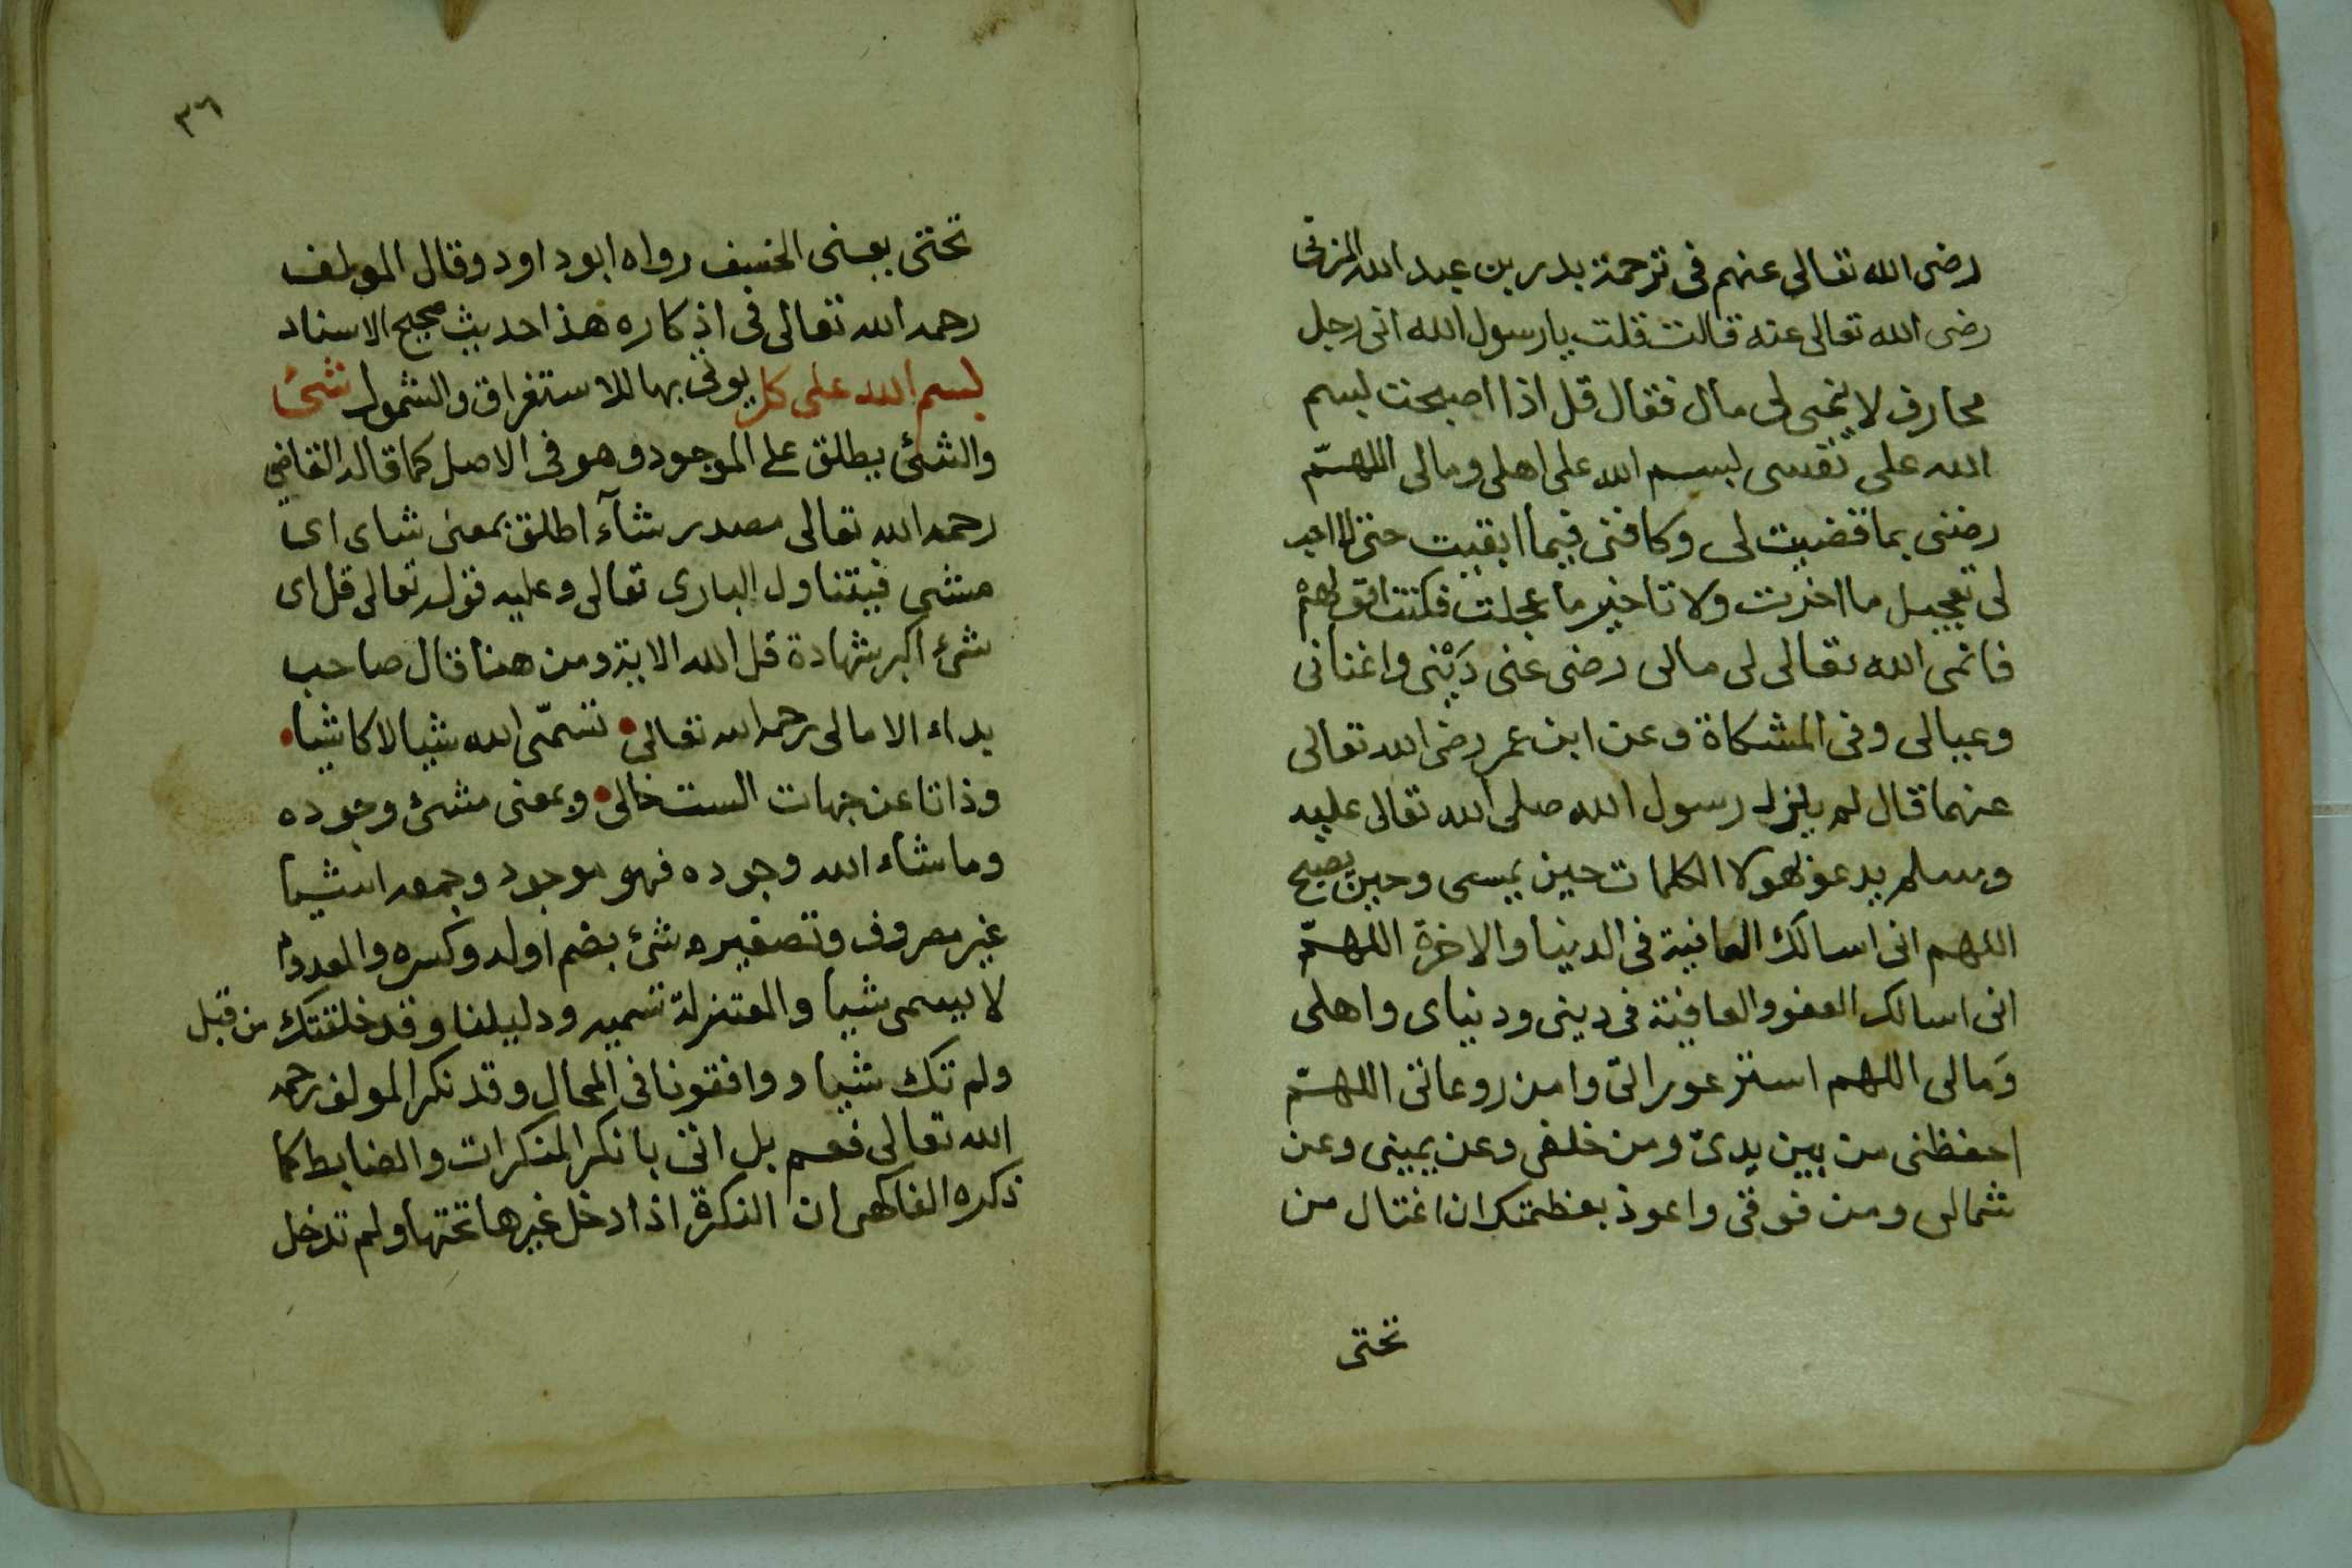 رضى الله تعالى عنهم فى ترجمة بدر بن عبد الله المزنى
رضى الله تعالى عنه قالت قلت يارسول الله انى رجل
محارف لا ينمى لى مال فقال قل اذا اصبحت بسم
الله على نفسى بسم الله على اهلى ومالى اللهمّ
رضنى بما قضيت لى وعافنى فيما ابقيت حتى لا احب
لى تعجيل ما اخرت ولا تاخير ما عجلت فكنت اقولهم
فانمى الله تعالى لى مالى رضى عنى دَيْنى واغنانى
وعيالى وفى المشكاة وعن ابن عمر رضى الله تعالى
عنهما قال لم يزل رسول الله صلى الله تعالى عليه
وسلم يدعو بهولا الكلمات حين يمسى وحين يصبح
اللهم انى اسالك العافية فى الدينا والاخرة اللهمّ
انى اسالك العفو والعافية فى دينى ودنياى واهلى
وَمالى اللهم استر عوراتى وامن روعاتى اللهمّ
احفظنى من بين يدىّ ومن خلفى وعن يمينى وعن
شمالى ومن فوقى واعوذ بعظمتك ان اغتال من
تحتى
٣٦
تحتى يعنى الخسف رواه ابو داود وقال المولف
رحمه الله تعالى فى اذكاره هذا حديث صحيح الاسناد
بسم الله على كل يوتى بها للاستغراق والشمول شئ
والشئ يطلق على الموجود وهو فى الاصل كما قاله القاضى
رحمه الله تعالى مصدر شآء اطلق بمعنى شاى اى
مشى فيتناول البارى تعالى وعليه قوله تعالى قل اى
شئ اكبر شهادة قل الله الاية ومن هنا قال صاحب
بداء الامالى رحمه الله تعالى نسمّى الله شيا لا كاشيا
وذاتا عن جهات الست خالى وبمعنى مشئ وجوده
وما شاء الله وجوده فهو موجود وجمعه اشيا
غير مصروف وتصغيره شئ بضم اوله وكسره والمعدوم
لا يسمى شيا والمعتزلة تسميه ودليلنا وقد خلقتك من قبل
ولم تك شيا ووافقونا فى المحال وقد نكر المولف رحمه
الله تعالى فعم بل اتى بانكر المنكرات والضابط كما
ذكره الفاكهى ان النكرة اذا دخل غيرها تحتها ولم تدخل